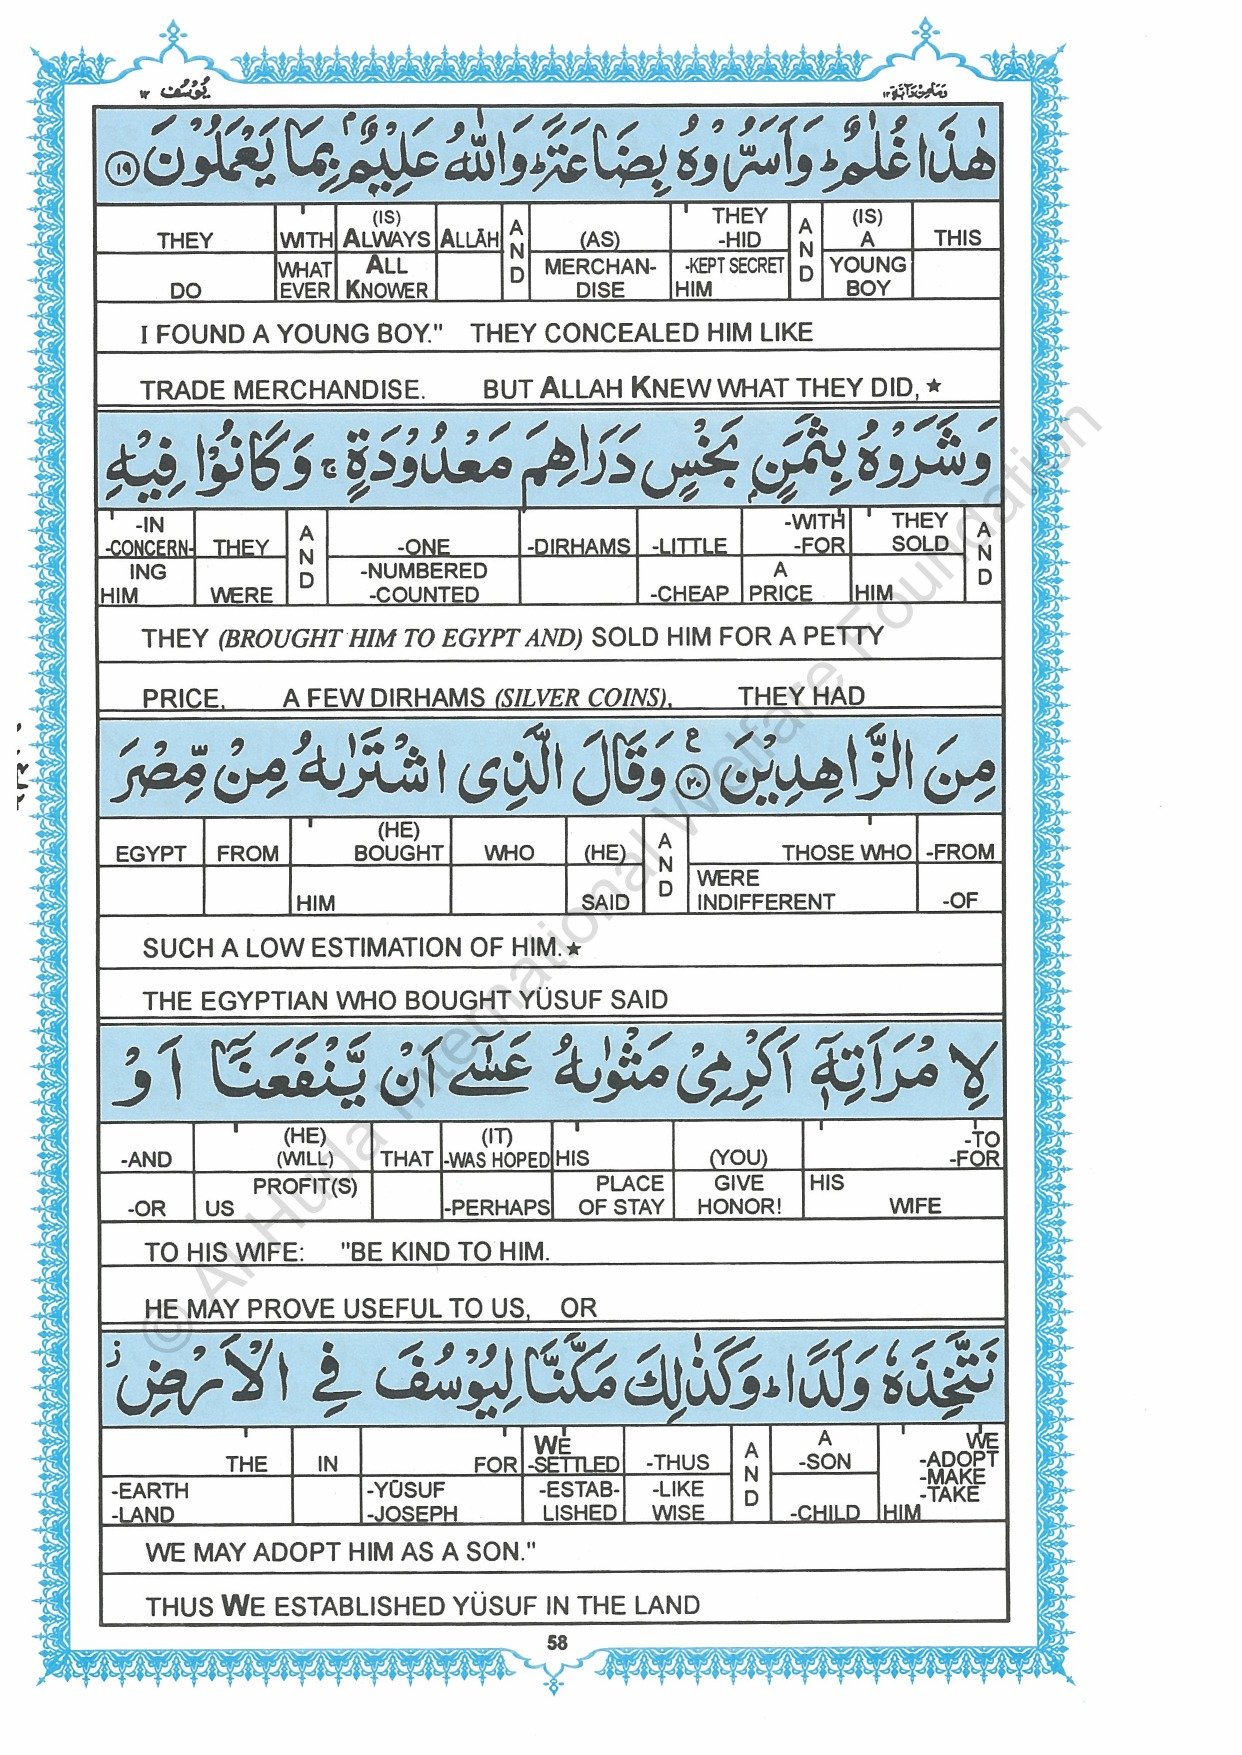 يُوسُف ١٢
وَمَا مِنْ دَآبَّةٍ ١٢
هٰذَا غُلٰمٌ ؕ وَاَسَرُّوْهُ بِضَاعَةً ؕ وَاللّٰهُ عَلِيْمٌۢ بِمَا يَعْمَلُوْنَ ١٩
THIS | (IS) A | AND | THEY -HID | (AS) | AND | ALLĀH | (IS) ALWAYS | WITH | THEY
YOUNG BOY | -KEPT SECRET HIM | MERCHAN-DISE | ALL KNOWER | WHAT EVER | DO
I FOUND A YOUNG BOY." THEY CONCEALED HIM LIKE
TRADE MERCHANDISE. BUT ALLAH KNEW WHAT THEY DID, ★
وَشَرَوْهُ بِثَمَنٍۭ بَخْسٍ دَرَاهِمَ مَعْدُوْدَةٍ ۚ وَكَانُوْا فِيْهِ
AND | THEY SOLD | -WITH -FOR | -LITTLE | -DIRHAMS | -ONE | AND | THEY | -IN -CONCERN-
HIM | A PRICE | -CHEAP | -NUMBERED -COUNTED | WERE | ING HIM
THEY (BROUGHT HIM TO EGYPT AND) SOLD HIM FOR A PETTY
PRICE, A FEW DIRHAMS (SILVER COINS), THEY HAD
مِنَ الزَّاهِدِيْنَ ٢٠ ع وَقَالَ الَّذِى اشْتَرٰىهُ مِنْ مِّصْرَ
-FROM | THOSE WHO | AND | (HE) | WHO | (HE) BOUGHT | FROM | EGYPT
-OF | WERE INDIFFERENT | SAID | HIM
SUCH A LOW ESTIMATION OF HIM. ★
THE EGYPTIAN WHO BOUGHT YÜSUF SAID
لِامْرَاَتِهٖۤ اَكْرِمِىْ مَثْوٰىهُ عَسٰٓى اَنْ يَّنْفَعَنَاۤ اَوْ
-TO -FOR | (YOU) | HIS | (IT) -WAS HOPED | THAT | (HE) (WILL) | -AND
HIS WIFE | GIVE HONOR! | PLACE OF STAY | -PERHAPS | PROFIT(S) US | -OR
TO HIS WIFE: "BE KIND TO HIM.
HE MAY PROVE USEFUL TO US, OR
نَتَّخِذَهٗ وَلَدًا ؕ وَكَذٰلِكَ مَكَّنَّا لِيُوْسُفَ فِى الْاَرْضِ ز
WE -ADOPT -MAKE -TAKE | A -SON | AND | -THUS | WE -SETTLED | FOR | IN | THE
HIM | -CHILD | -LIKE WISE | -ESTAB-LISHED | -YŪSUF -JOSEPH | -EARTH -LAND
WE MAY ADOPT HIM AS A SON."
THUS WE ESTABLISHED YÜSUF IN THE LAND
58
© Al-Huda International Welfare Foundation